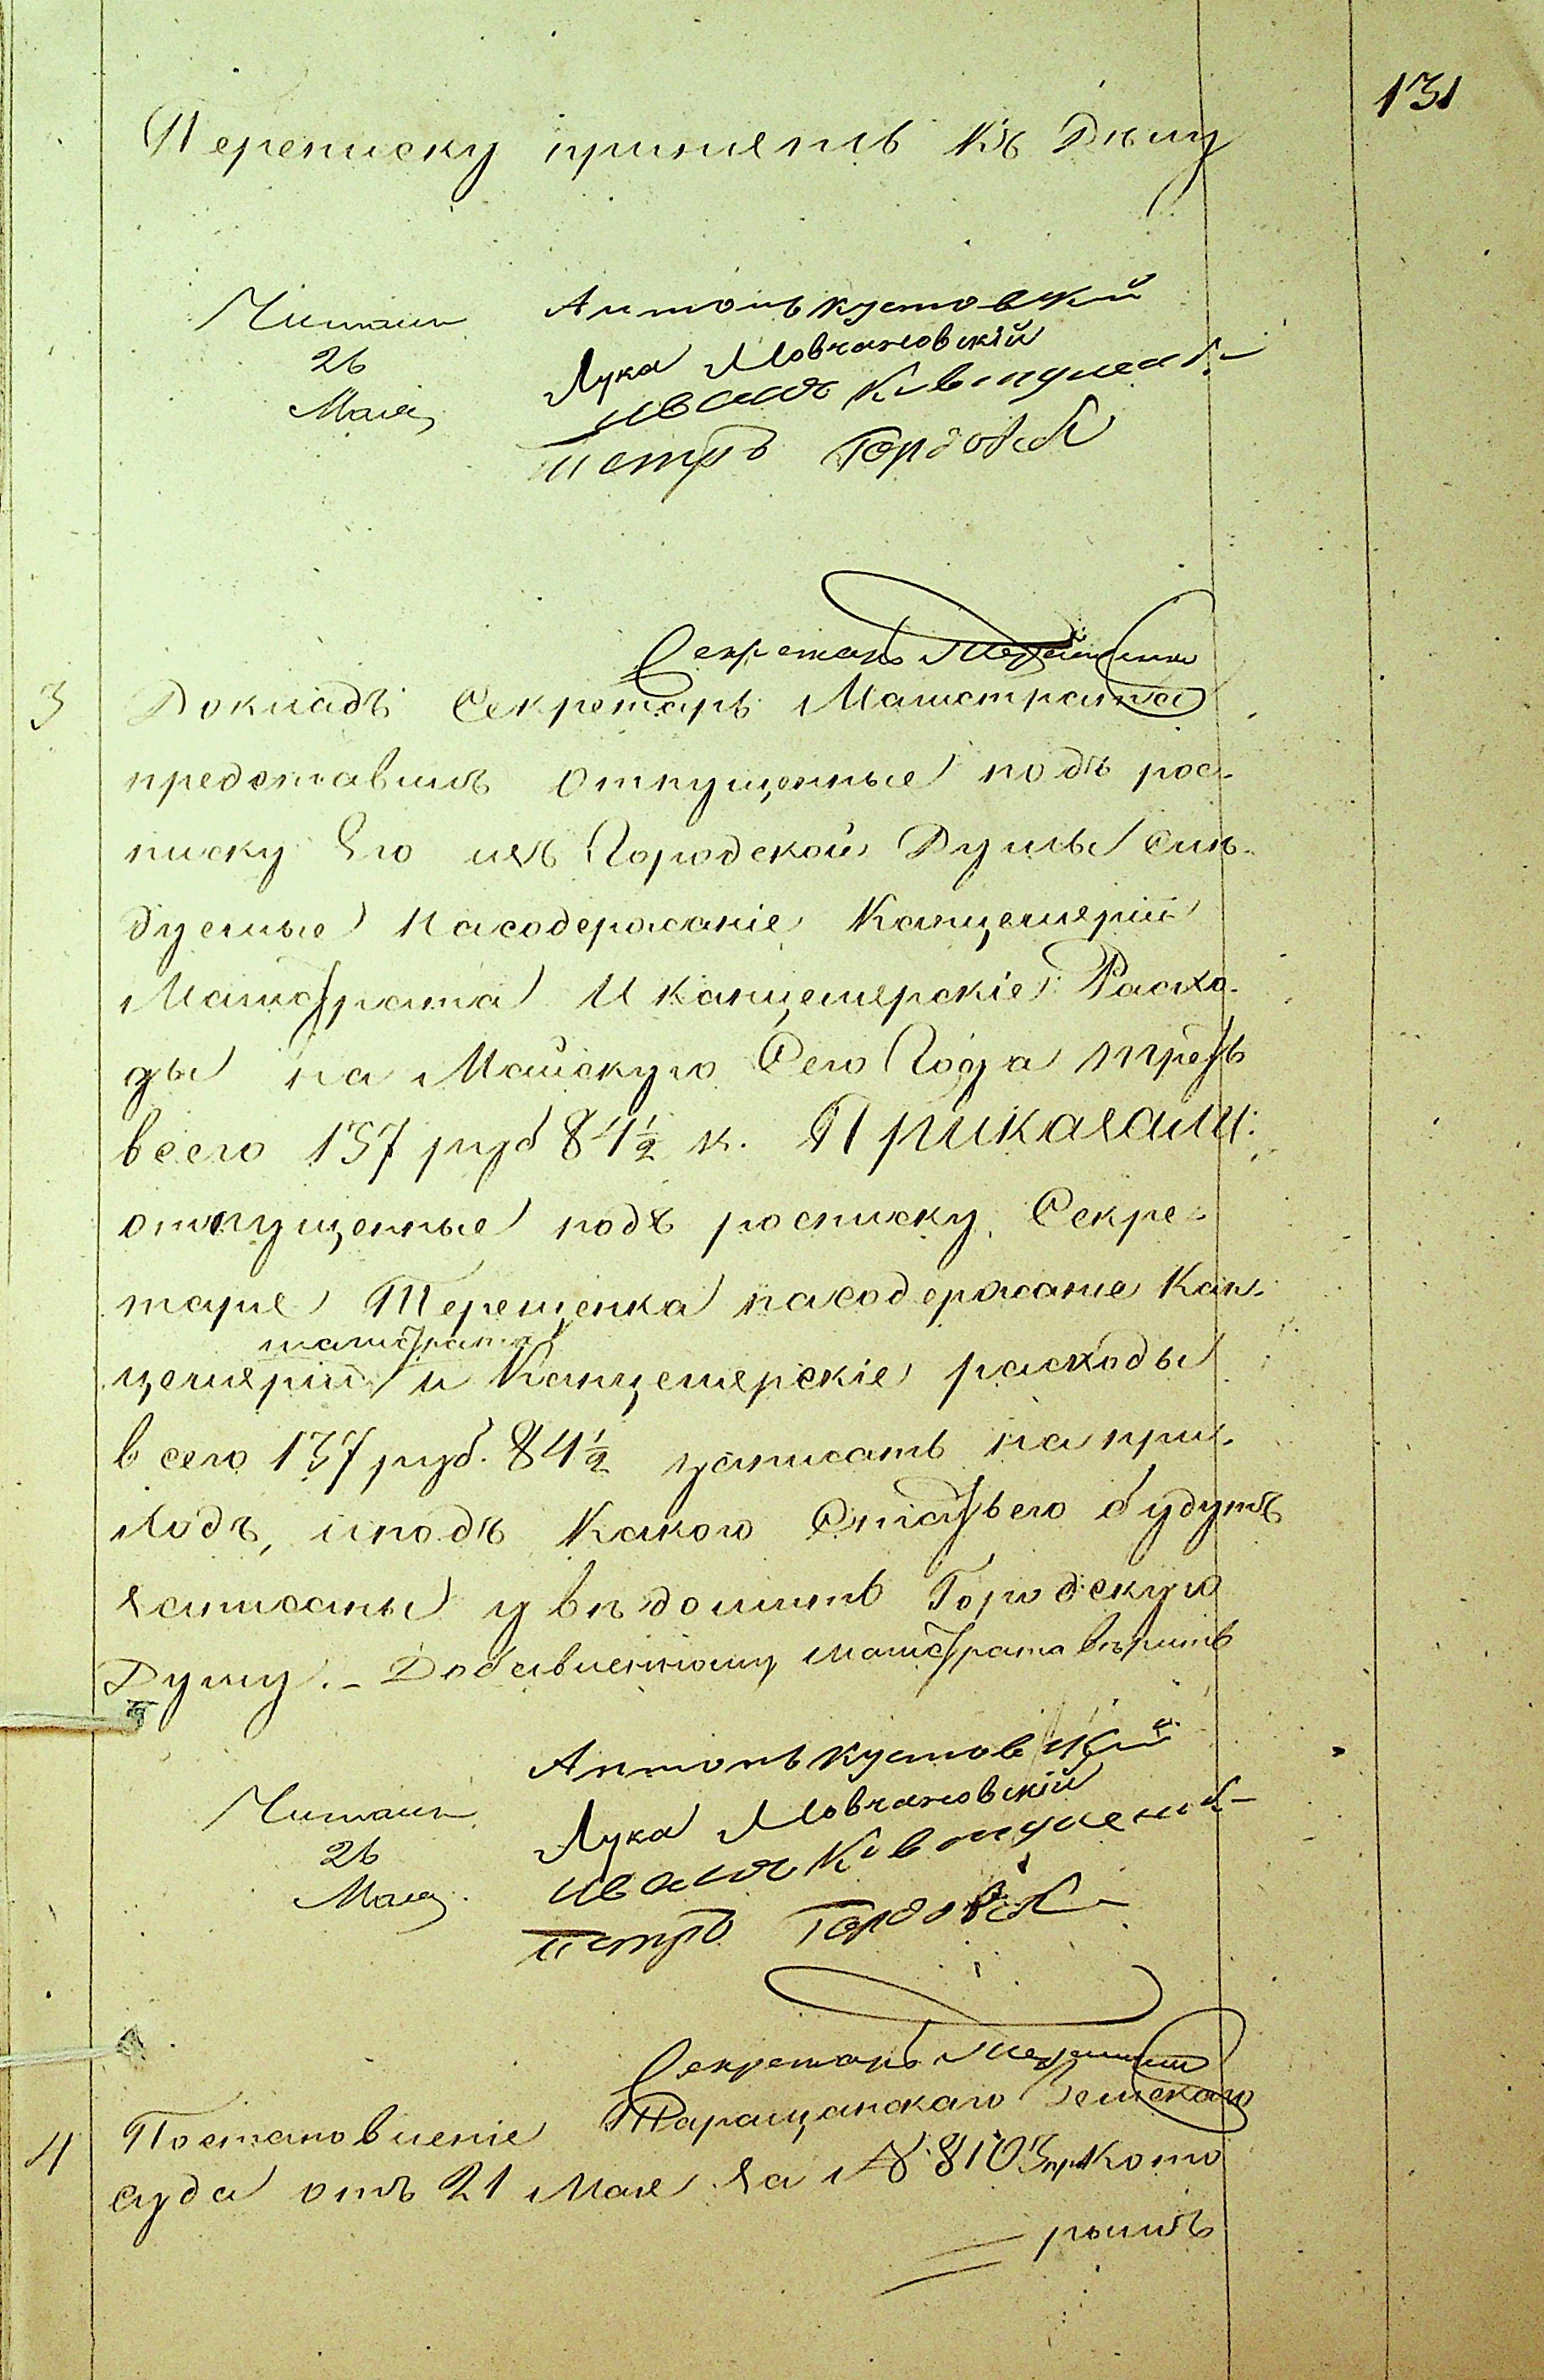 131
Переписку пріинять къ Дѣлу
Читалъ
26
Мая
Антонъ Кустовскій
Лука Мовчановскій
Иванъ
Петръ
Секретарь Терещенко
3
Докладъ Секретарь Магистрата
представилъ отпущенные подъ рос-
писку Его изъ Городской Думы слѣ-
дуемые на содержаніе Канцелярій
Магистрата И канцелярскіе Расхо-
ды на Майскую Сего Года треть
всего 137 руб 84½ к. Приказали:
отпущенные подъ росписку Секре-
таря Терещенка на содержание Кан-
магистрата
целяріи и Канцелярскіе расходы
всего 137 руб. 84½ записать на при-
ходъ, и подъ какою Статьею будутъ
записаны увѣдомить Городскую
Думу. – Добавленному магистрата вѣрить
Читалъ
26
Мая
Антонъ Кустовскій
Лука Мовчановскій
Иванъ
Петръ
Секретарь Терещенко
4
Постановленіе Таращанскаго Земскаго
суда отъ 21 Мая за № 8103 при кото
рымъ